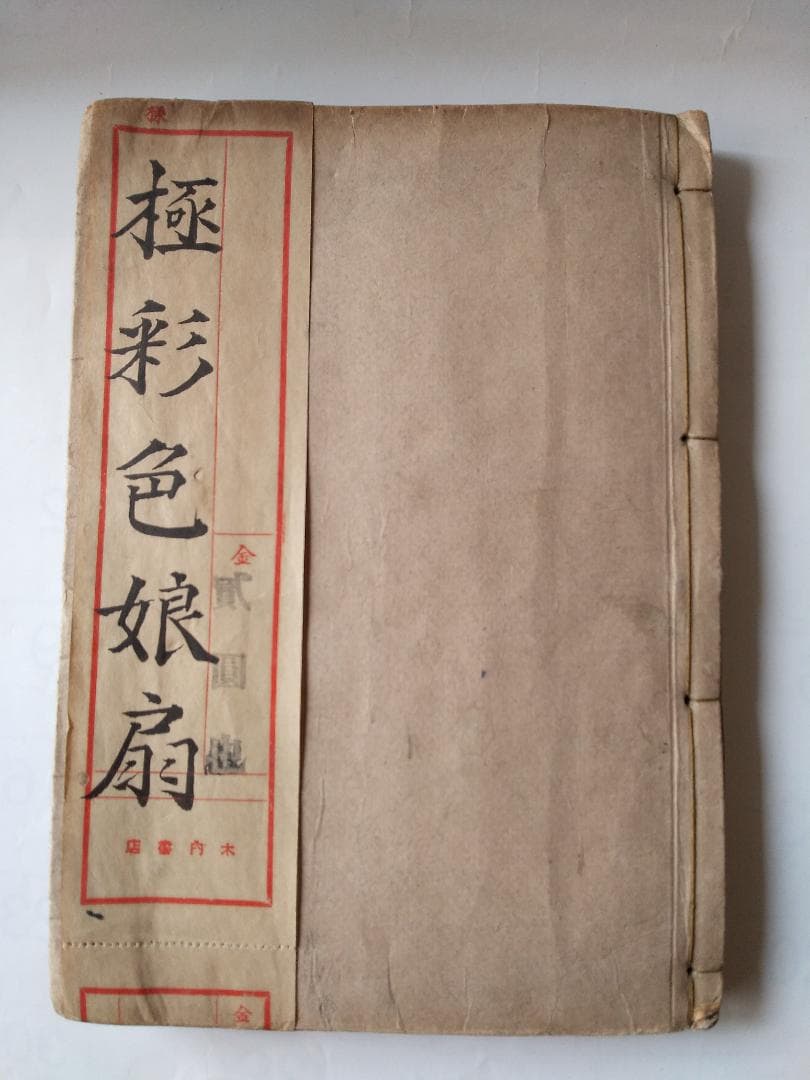 極彩色娘扇
金貳圓也
木内書店
金